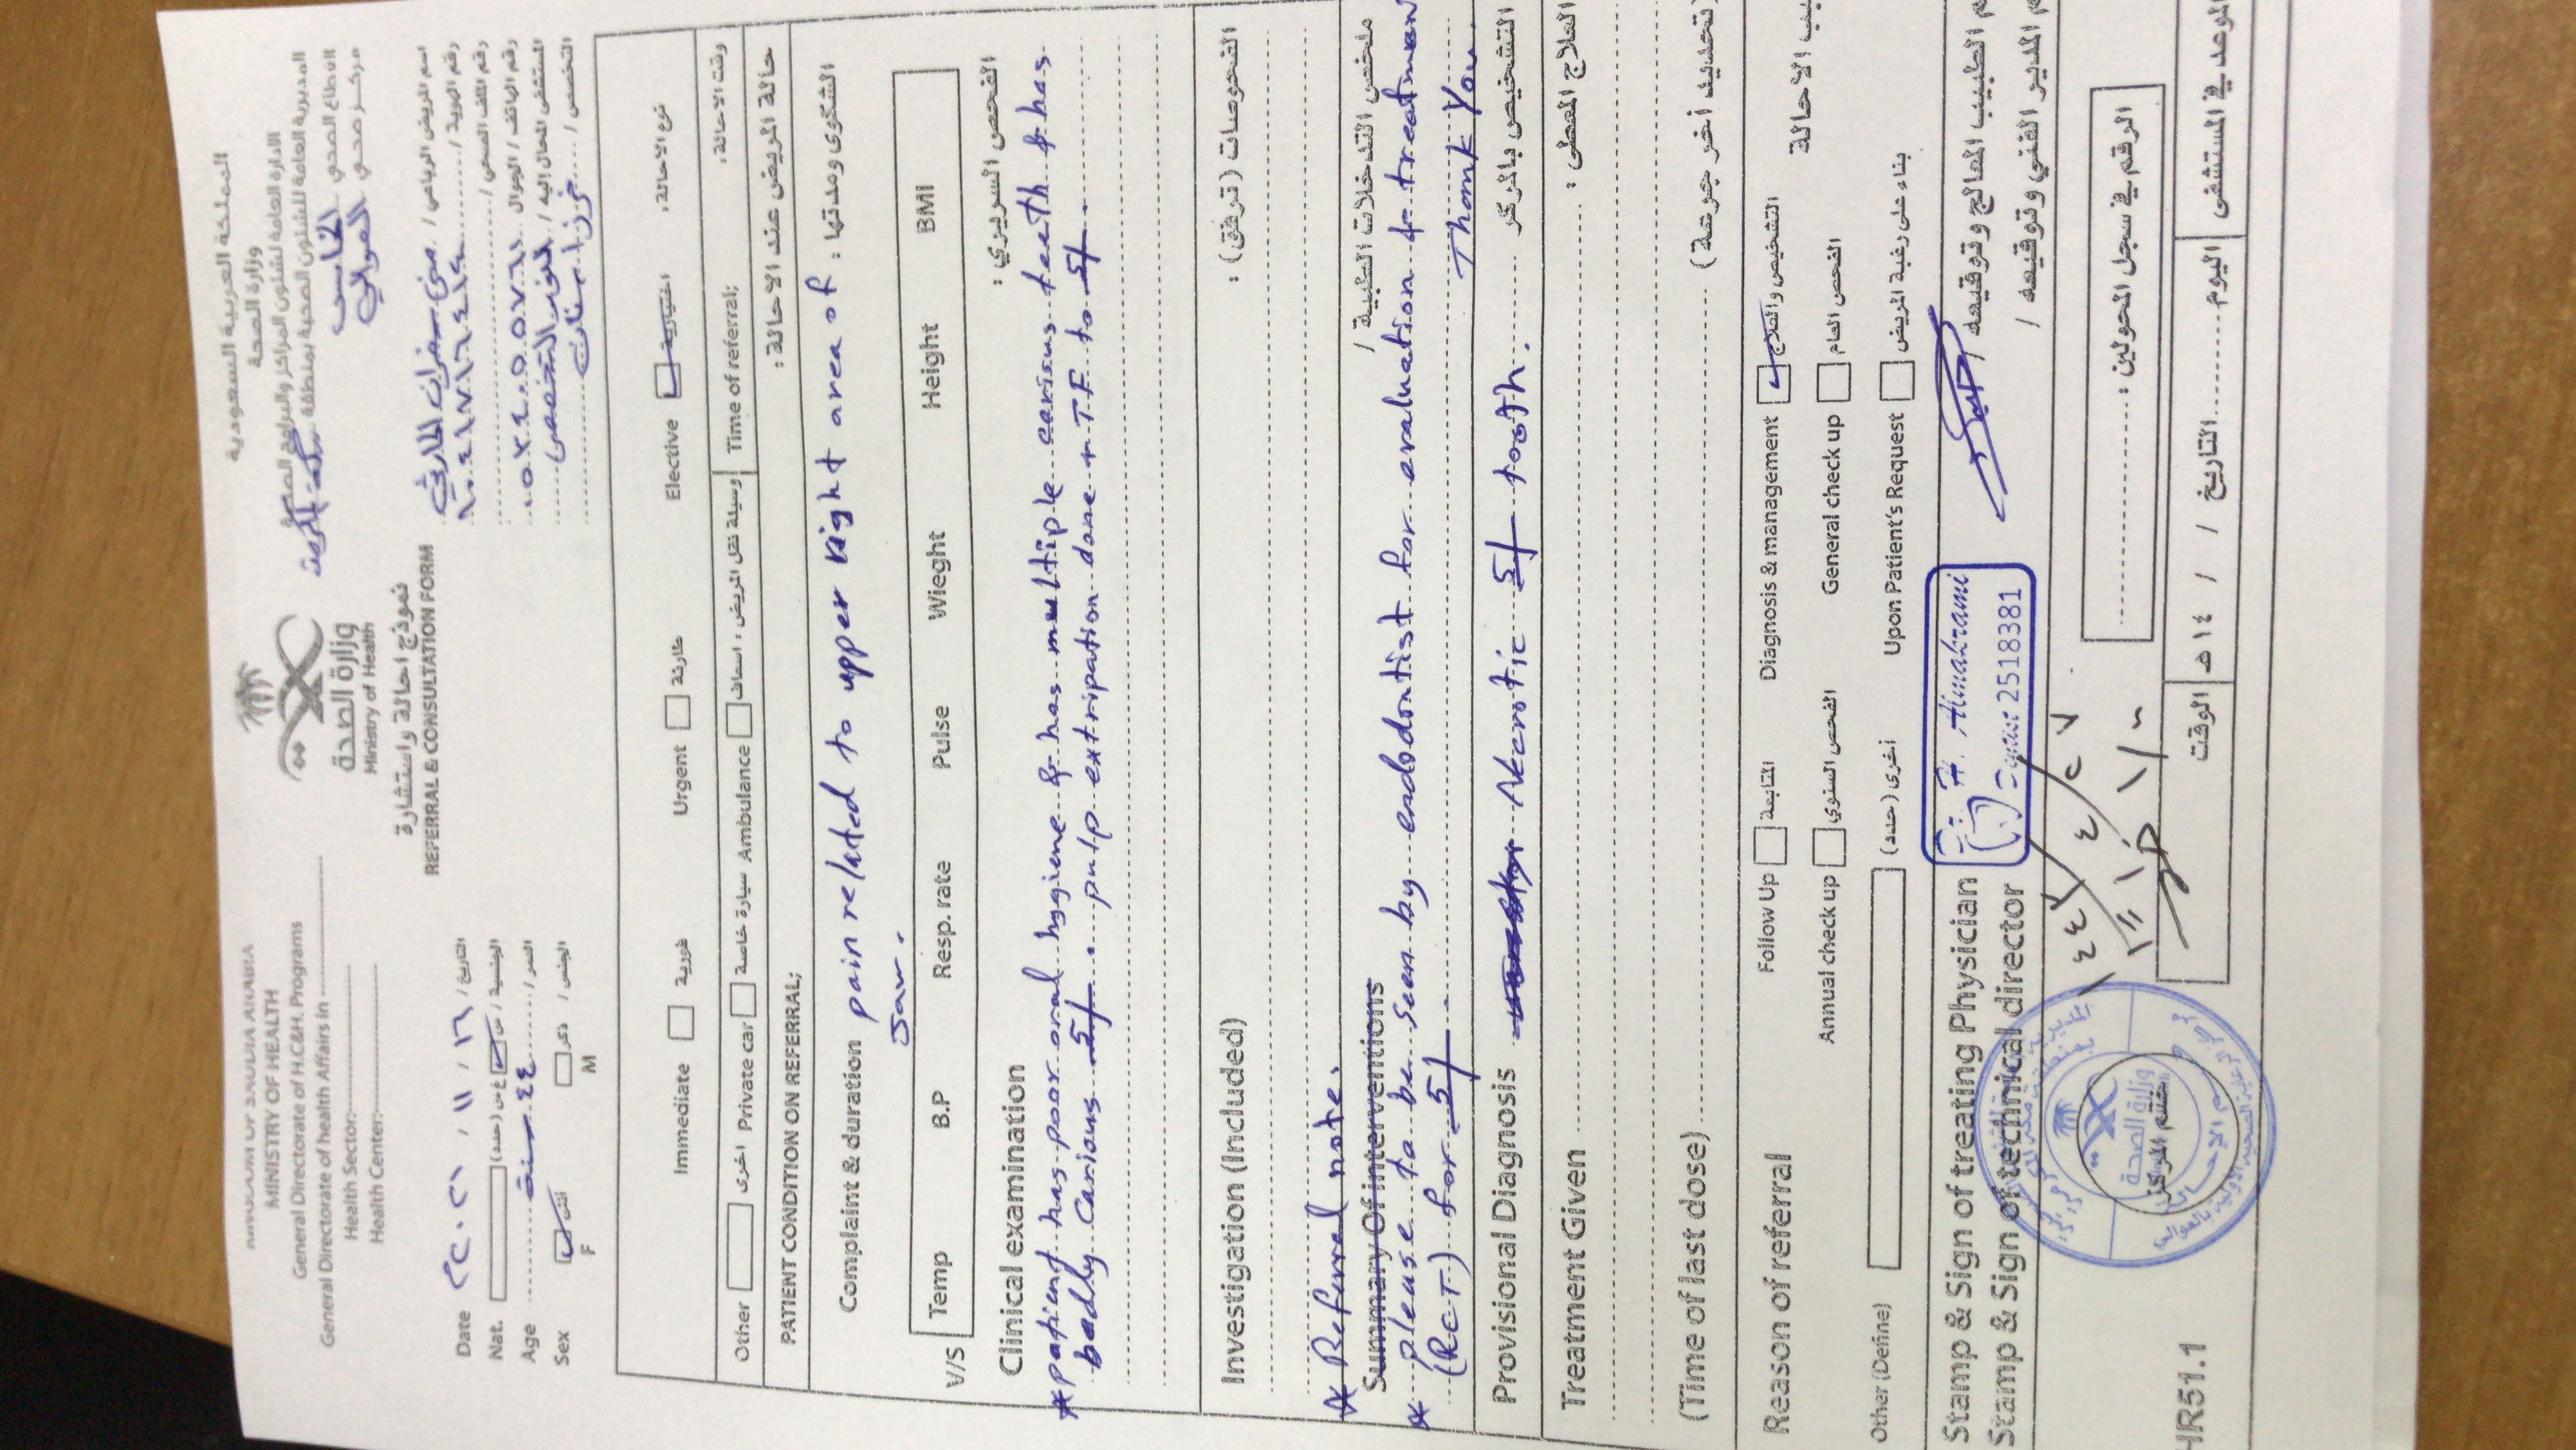 KINGDOM OF SAUDIA ARABIA
MINISTRY OF HEALTH
General Directorate of H.C&H. Programs
General Directorate of health Affairs in
Health Sector:
Health Center:
وزارة الصحة
Ministry of Health
نموذج احالة واستشارة
REFERRAL & CONSULTATION FORM
المملكة العربية السعودية
وزارة الصحة
الادارة العامة لشئون المراكز والبرامج الصحية
المديرية العامة للشئون الصحية بمنطقة مكة المكرمة
القطاع الصحي الخامس
مركز صحي العوالي
اسم المريض الرباعي / منى سفران الحارثي
رقم الهوية / ١٠٤١٧١٦٤١٤
رقم الملف الصحي /
رقم الهاتف / الجوال ٠٥٣٤٠٥٥٧٦١
المستشفى المحال إليه / النور التخصصي
التخصص /
Date التاريخ / ١٦ / ١١ / ٢٠٢١م
Nat. الجنسية / س غ س (حدد)
Age العمر / ٤٤ سنة
Sex أنثى ذكر الجنس /
F M
Immediate فورية Urgent طارئة Elective اختيارية نوع الاحالة:
Other اخرى Private car سيارة خاصة Ambulance وسيلة نقل المريض: اسعاف Time of referral; وقت الاحالة:
PATIENT CONDITION ON REFERRAL; حالة المريض عند الاحالة:
Complaint & duration pain related to upper right area of الشكوى ومدتها:
Jaw.
V/S Temp B.P Resp. rate Pulse Wieght Height BMI
Clinical examination الفحص السريري:
* patient has poor oral hygiene & has multiple carious teeth & has
badly carious 5/ . pulp extripation done + TF to 5/ .
Investigation (Included) الفحوصات (ترفق):
* Referral note.
Summary Of interventions ملخص التدخلات الطبية /
* please to be seen by endodontist for evaluation & treatmen
(RCT) for 5/ .
Thank You.
Provisional Diagnosis Necrotic 5/ tooth. التشخيص بالمركز
Treatment Given العلاج المعطى:
(Time of last dose) (تحديد أخر جرعة)
Reason of referral Follow Up المتابعة Diagnosis & management التشخيص والعلاج
يب الاحالة
Annual check up الفحص السنوي General check up الفحص العام
Other (Define) أخرى (حدد) Upon Patient's Request بناء على رغبة المريض
Stamp & Sign of treating Physician م الطبيب المعالج وتوقيعه /
Dr. H. Almakrami
Dentist 2518381
Stamp & Sign of technical director م المدير الفني وتوقيعه /
١٤٤٣ / ٤ / ٢٧
الرقم في سجل المحولين:
وزارة الصحة
ختم المركز
HR51.1
الموعد في المستشفى اليوم التاريخ / / ١٤ هـ الوقت